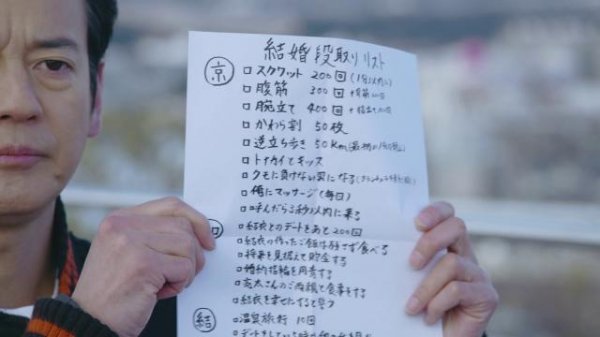 結婚段取りリスト
京
□スクワット 200回(1分以内に)
□腹筋 300回
□腕立て 400回
□かわら割 50枚
□逆立ち歩き 50Km
□トイカイとキッス
□クモに負けない男になる
□俺にマッサージ(毎日)
□呼んだら3秒以内に来る
□結衣とのデートをあと200回
□結衣の作ったご飯は残さず食べる
□将来を見据えて貯金する
□婚約指輪を用意する
□亮太さんのご両親と食事をする
□結衣を幸せにすると誓う
結
□温泉旅行 10回